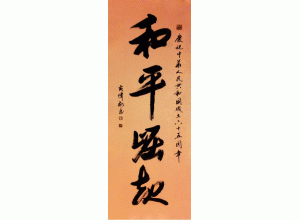 庆祝中华人民共和国成立六十五周年
和平崛起